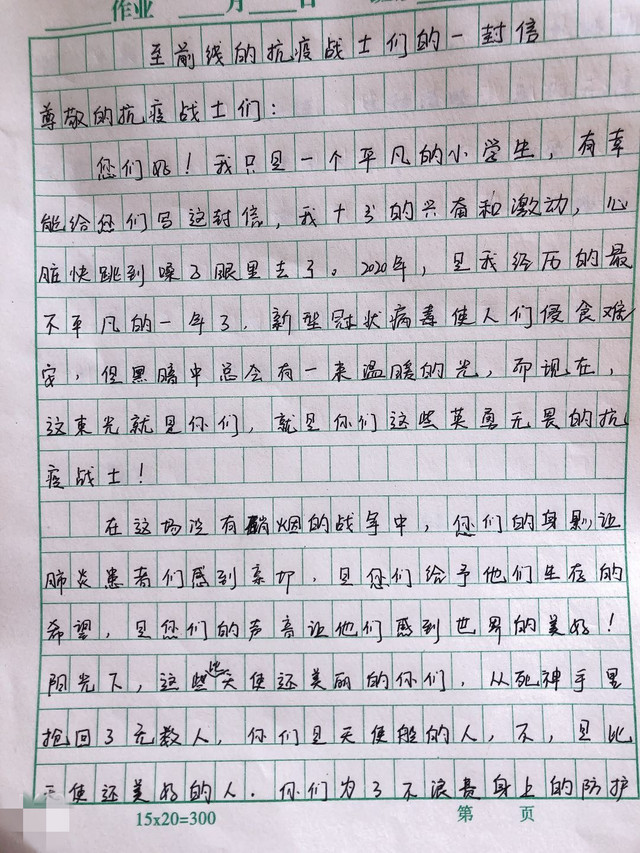 作业 月 日
至前线的抗疫战士们的一封信
尊敬的抗疫战士们：
您们好！我只是一个平凡的小学生，有幸
能给您们写这封信，我十分的兴奋和激动，心
脏快跳到嗓子眼里去了。2020年，是我经历的最
不平凡的一年了．新型冠状病毒使人们寝食难
安，但黑暗中总会有一束温暖的光，而现在，
这束光就是你们，就是你们这些英勇无畏的抗
疫战士！
在这场没有硝烟的战争中，您们的身影让
肺炎患者们感到亲切，是您们给予他们生存的
希望，是您们的声音让他们感到世界的美好！
阳光下，这些比天使还美丽的你们，从死神手里
抢回了无数人，你们是天使般的人，不，是比
天使还美好的人．你们为了不浪费身上的防护
15x20=300
第 页